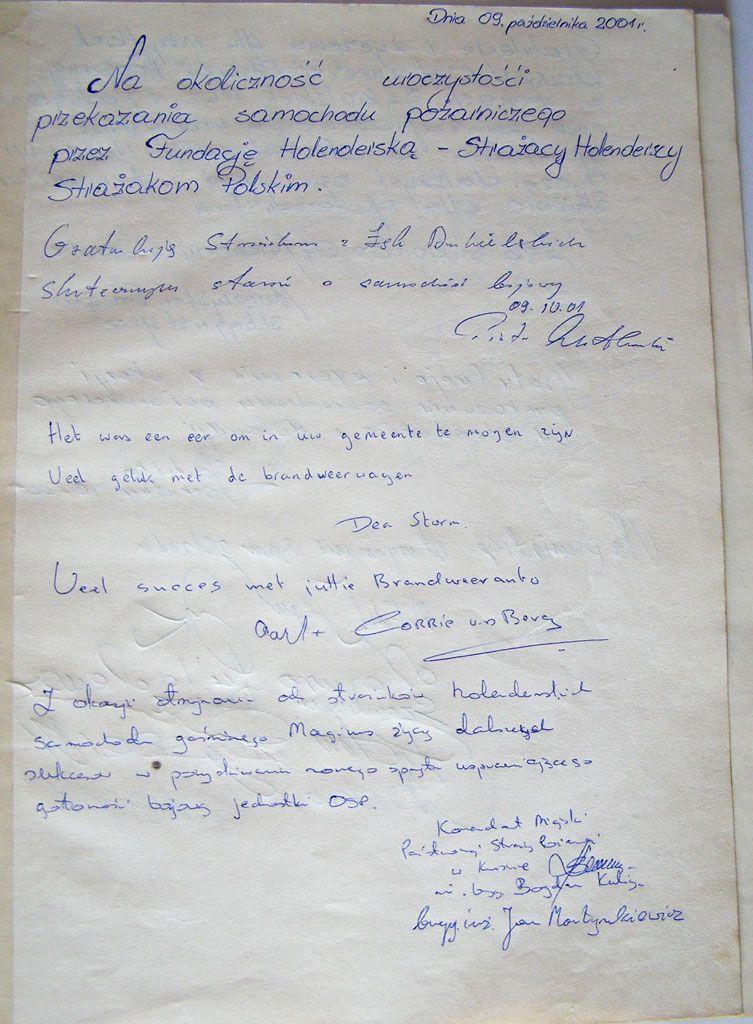 Dnia 09. października 2001 r.
Na okoliczność uroczystości
przekazania samochodu pożarniczego
przez Fundację Holenderską – Strażacy Holenderscy
Strażakom Polskim.
Gratuluję Strażakom z
skutecznych starań o samochód bojowy
09.10.01
Het was een eer om in uw gemeente te mogen zijn
Veel geluk met de brandweerwagen
Dea Storm.
Veel succes met jullie Brandweerauto
Carl + Corrie v.d Berg
Z okazji otrzymania od strażaków holenderskich
samochodu gaśniczego Magirus życzę dalszych
sukcesów w pozyskiwaniu nowego sprzętu usprawniającego
gotowość bojową jednostki OSP.
Komendant Miejski
Państwowej Straży Pożarnej
w Krośnie
bryg. Bogdan
bryg. inż. Jan Martynkiewicz